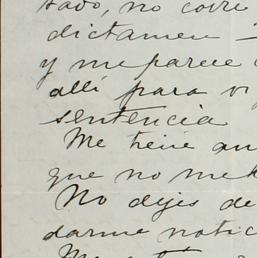 sado, no corre
dictamen
y me parece
allí para
sentencia
Me tiene an
que no me h
No dejes de
darme notic